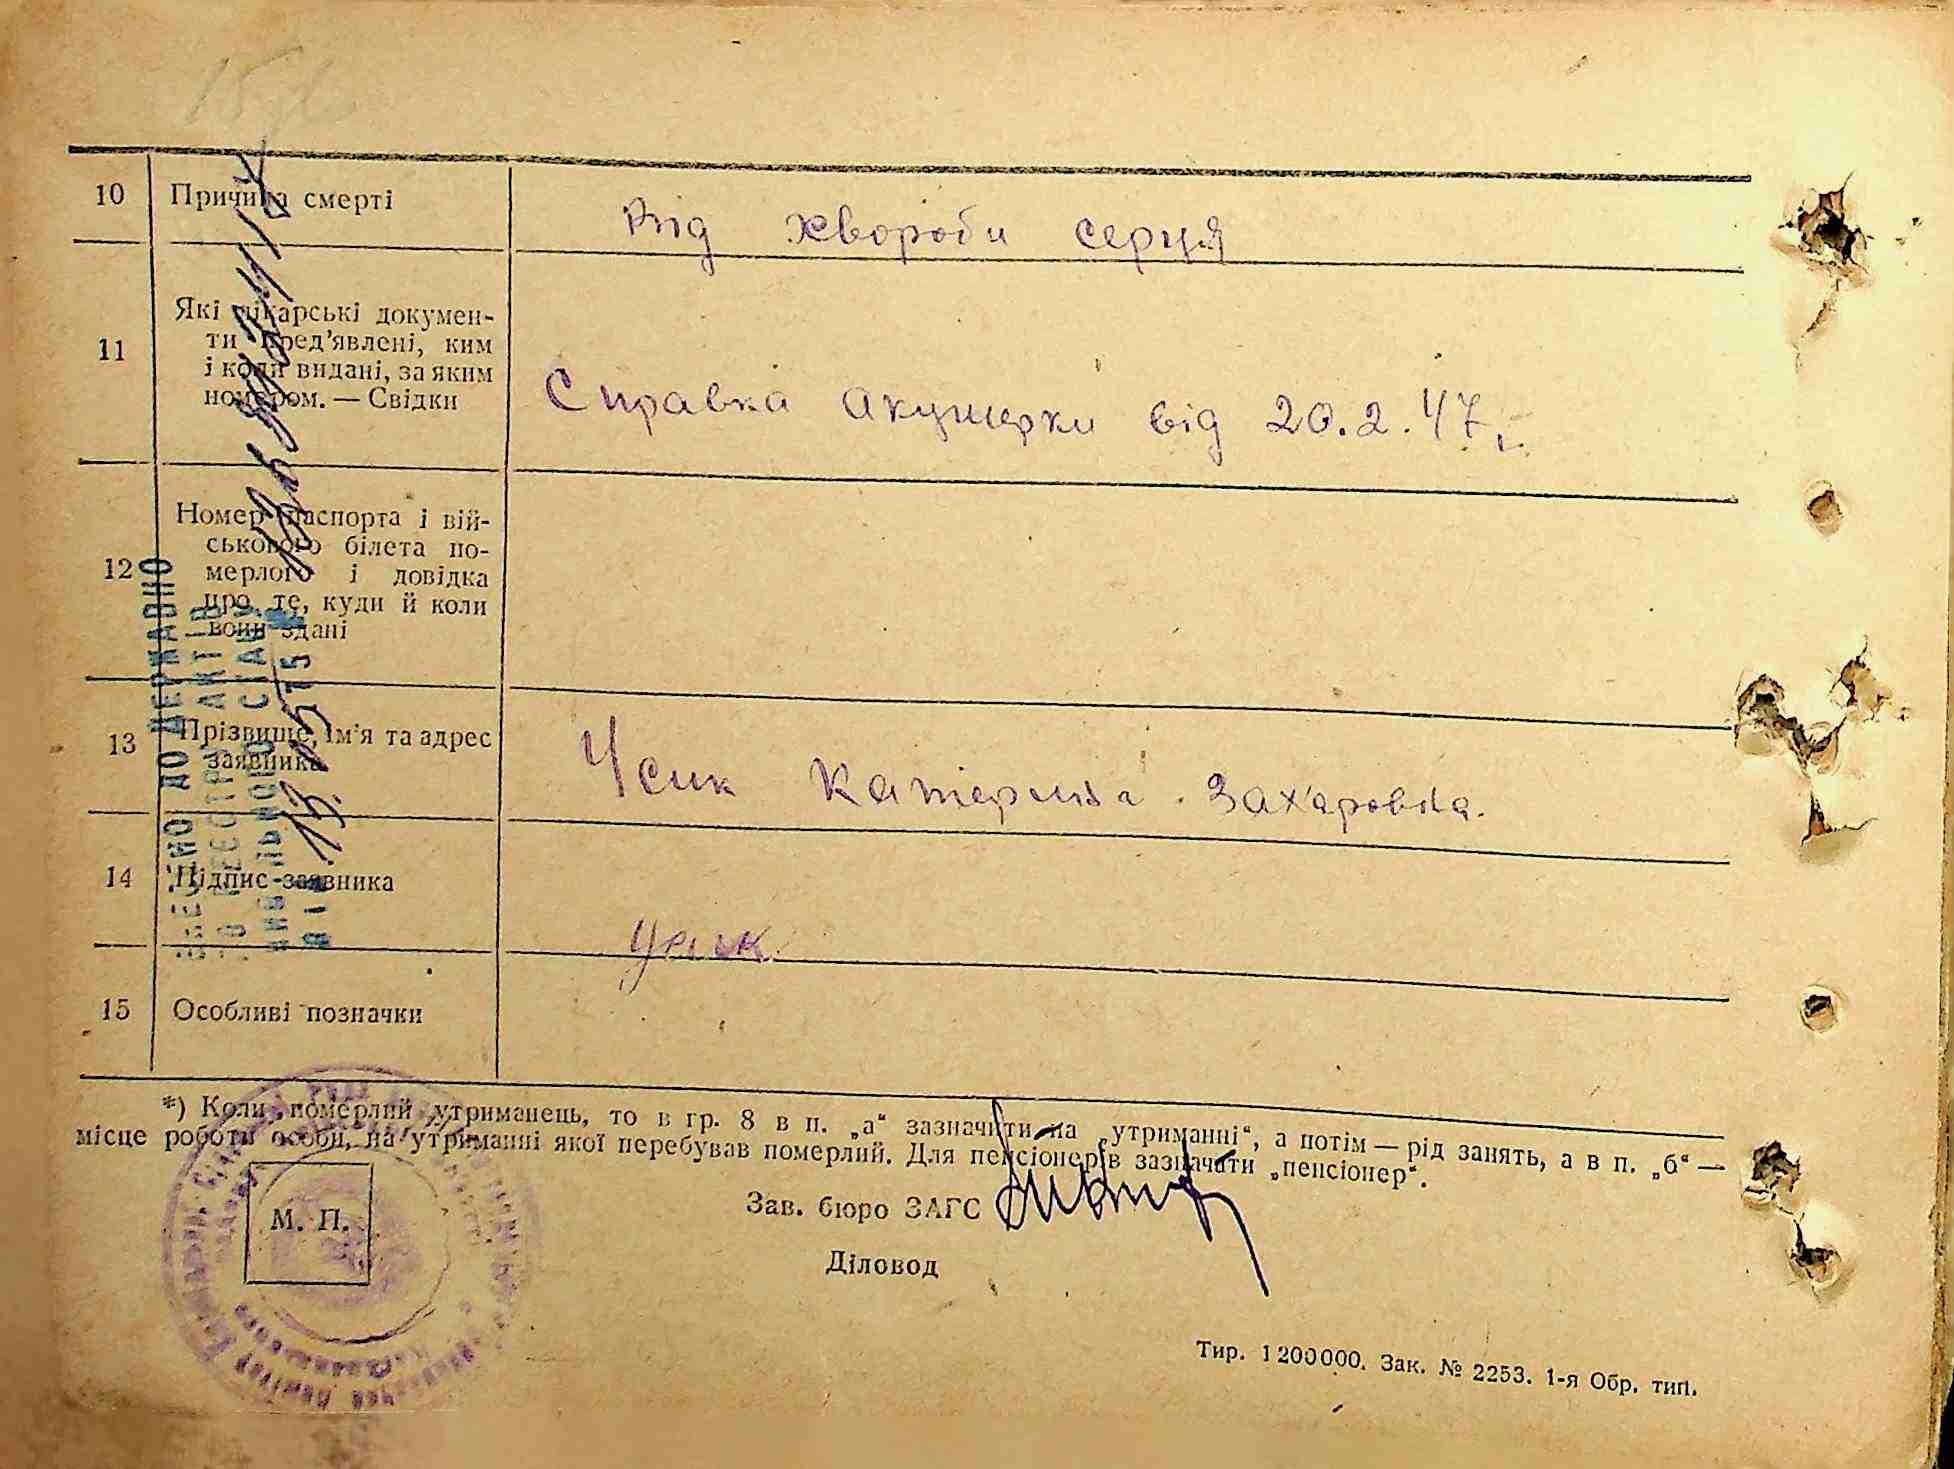 10 Причина смерті Від хвороби серця
11 Які лікарські докумен-
ти пред’явлені, ким
і коли видані, за яким
номером. — Свідки
Справка акушерки від 20.2.47 г.
12 Номер паспорта і вій-
ськового білета по-
мерлого і довідка
про те, куди й коли
вони здані
13 Прізвище, ім’я та адрес
заявника
Усик Катерина Захаровна.
14 Підпис заявника
Усик
15 Особливі позначки
ВНЕСЕНО ДО ДЕРЖАВНО
ГО РЕЄСТРУ АКТІВ
ЦИВІЛЬНОГО СТАНУ
*) Коли померлий утриманець, то в гр. 8 в п. „а“ зазначити на „утриманні“, а потім — рід занять, а в п. „б“ —
місце роботи особи, на утриманні якої перебував померлий. Для пенсіонерів зазначати „пенсіонер“.
М. П.
Зав. бюро ЗАГС
Діловод
Тир. 1200000. Зак. № 2253. 1-я Обр. тип.